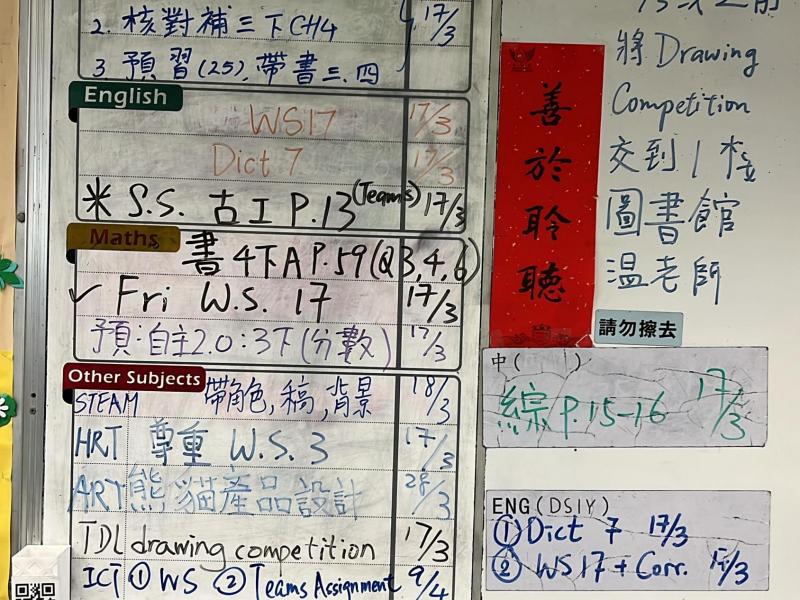 2. 核對補三下CH4 17/3
3 預習(25),帶書三.四
English
WS17 17/3
Dict 7 17/3
* S.S. 古工 P.13 (Teams) 17/3
Maths
書 4下A P.59 (Q3,4,6)
✓ Fri W.S. 17 17/3
預:自主2.0:3下(分數) 17/3
Other Subjects
STEAM 帶角色,稿,背景 18/3
HRT 尊重 W.S. 3 17/3
ART 熊貓產品設計 28/3
TDL drawing competition 17/3
ICT ① WS ② Teams Assignment 9/4
將 Drawing
Competition
交到1樓
圖書館
溫老師
善於聆聽
請勿擦去
中( )
綜 P.15-16 17/3
ENG (DSIY)
① Dict 7 17/3
② WS17 + Corr. 17/3